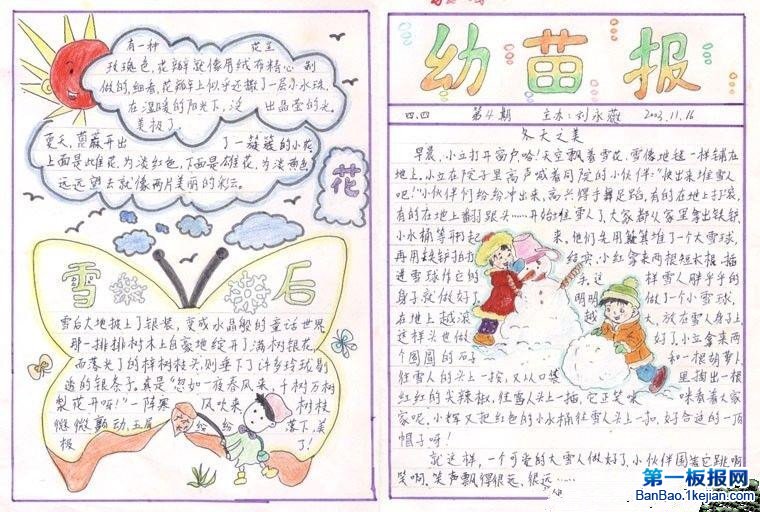 有一种 花呈
玫瑰色,花瓣就像用绒布精心制
做的,细看,花瓣上似乎还撒了一层小水珠,
在温暖的阳光下,泛出晶莹的光,
美极了。
夏天,蔷薇开出了一簇簇的小花,
上面是雌花,为淡红色,下面是雄花,为淡黄色,
远远望去就像两片美丽的彩云。
花
雪后
雪后大地披上了银装,变成水晶般的童话世界
那一排排树木上自豪地绽开了满树银花,
而落光了的梓树枝头,则垂下了许多玲珑剔
透的银条子,真是“忽如一夜春风来,千树万树
梨花开呀!”一阵寒风吹来,树枝
微微颤动,玉屑纷纷落下,美
极了!
幼苗报
四.四 第4期 主办:刘永薇 2003.11.16
冬天之美
早晨,小立打开窗户,哈!天空飘着雪花,雪像地毯一样铺在
地上,小立在院子里高声喊着同院的小伙伴:“快出来堆雪人
吧!”小伙伴们纷纷冲出来,高兴得手舞足蹈,有的在地上打滚,
有的在地上翻跟头……开始堆雪人了,大家都从家里拿出铁锹,
小水桶等
来。他们先用簸箕堆了一个大雪球,
再用铁锹拍
结实,小红拿来两根短木棍,插
进雪球作它的手,这样雪人胖乎乎的
身子就做好了 明明做了一个小雪球,
在地上越滚越大,放在雪人身上
这样头也做好了,小立拿来两
个圆圆的石子和一根胡萝卜
往雪人的头上一按,又从口袋里掏出一根
红红的尖辣椒,往雪人头上一插,它正笑咪咪看着大家
家呢,小辉又把红色的小水桶往雪人头上一扣,好合适的一顶
帽子呀!
就这样,一个可爱的大雪人做好了,小伙伴围着它跳啊
笑啊,笑声飘得很远,很远……
第一板报网
BanBao.1kejian.com